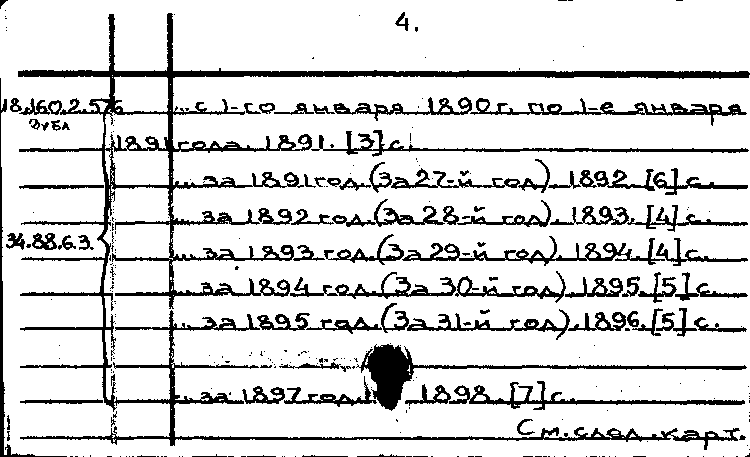 4.
18.160.2.576 ...с 1-го января 1890г. по 1-е января
дубл
1891 года. 1891. [3] с.
...за 1891 год. (За 27-й год). 1892. [6] с.
...за 1892 год. (За 28-й год). 1893. [4] с.
34.88.6.3. ...за 1893 год. (За 29-й год). 1894. [4] с.
...за 1894 год. (За 30-й год). 1895. [5] с.
...за 1895 год. (За 31-й год). 1896. [5] с.
...за 1897 год. 1898. [7] с.
См. след. карт.